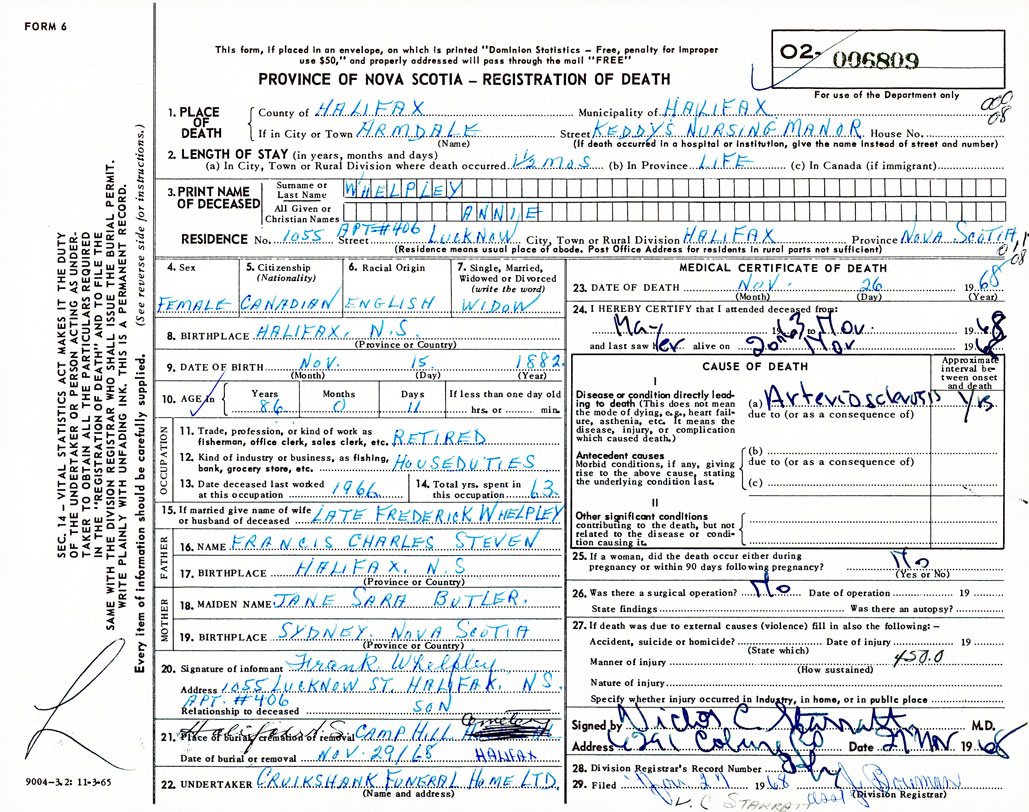 FORM 6
This form, if placed in an envelope, on which is printed "Dominion Statistics – Free, penalty for improper
use $50," and properly addressed will pass through the mail "FREE"
PROVINCE OF NOVA SCOTIA – REGISTRATION OF DEATH
02- 006809
For use of the Department only
1. PLACE OF DEATH
County of HALIFAX Municipality of HALIFAX
If in City or Town ARMDALE Street KEDDY'S NURSING MANOR House No.
(Name) (If death occurred in a hospital or institution, give the name instead of street and number)
2. LENGTH OF STAY (in years, months and days)
(a) In City, Town or Rural Division where death occurred 1½ MOS (b) In Province LIFE (c) In Canada (if immigrant)
3. PRINT NAME OF DECEASED
Surname or Last Name WHELPLEY
All Given or Christian Names ANNIE
RESIDENCE No. 1055 Street APT #406 LUCKNOW City, Town or Rural Division HALIFAX Province NOVA SCOTIA
(Residence means usual place of abode. Post Office Address for residents in rural parts not sufficient)
4. Sex
FEMALE
5. Citizenship
(Nationality)
CANADIAN
6. Racial Origin
ENGLISH
7. Single, Married,
Widowed or Divorced
(write the word)
WIDOW
8. BIRTHPLACE HALIFAX, N.S.
(Province or Country)
9. DATE OF BIRTH NOV. 15 1882
(Month) (Day) (Year)
10. AGE in Years Months Days If less than one day old
86 0 11 hrs. or min.
OCCUPATION
11. Trade, profession, or kind of work as
fisherman, office clerk, sales clerk, etc. RETIRED
12. Kind of industry or business, as fishing,
bank, grocery store, etc. HOUSEDUTIES
13. Date deceased last worked
at this occupation 1966
14. Total yrs. spent in
this occupation 63
15. If married give name of wife
or husband of deceased LATE FREDERICK WHELPLEY
FATHER
16. NAME FRANCIS CHARLES STEVEN
17. BIRTHPLACE HALIFAX, N.S
(Province or Country)
MOTHER
18. MAIDEN NAME JANE SARA BUTLER.
19. BIRTHPLACE SYDNEY, NOVA SCOTIA
(Province or Country)
20. Signature of informant Frank Whelpley
Address 1055 LUCKNOW ST. HALIFAX, N.S.
APT. #406
Relationship to deceased SON
21. Place of burial, cremation or removal Halifax N.S. CAMP HILL Cemetery
Date of burial or removal NOV 29/68 HALIFAX
22. UNDERTAKER CRUIKSHANK FUNERAL HOME LTD.
(Name and address)
MEDICAL CERTIFICATE OF DEATH
23. DATE OF DEATH NOV. 26 1968
(Month) (Day) (Year)
24. I HEREBY CERTIFY that I attended deceased from:
May 1963 Nov. 1968
and last saw her alive on 20th Nov 1968
CAUSE OF DEATH
Approximate
interval be-
tween onset
and death
I
Disease or condition directly lead-
ing to death (This does not mean
the mode of dying, e.g., heart fail-
ure, asthenia, etc. It means the
disease, injury, or complication
which caused death.)
(a) Arteriosclerosis yrs
due to (or as a consequence of)
Antecedent causes
Morbid conditions, if any, giving
rise to the above cause, stating
the underlying condition last.
(b)
due to (or as a consequence of)
(c)
II
Other significant conditions
contributing to the death, but not
related to the disease or condi-
tion causing it.
25. If a woman, did the death occur either during
pregnancy or within 90 days following pregnancy? No
(Yes or No)
26. Was there a surgical operation? No Date of operation 19
State findings Was there an autopsy?
27. If death was due to external causes (violence) fill in also the following: –
Accident, suicide or homicide? Date of injury 19
(State which)
Manner of injury 450.0
(How sustained)
Nature of injury
Specify whether injury occurred in Industry, in home, or in public place
Signed by C Starratt M.D.
Address 6291 Coburg Rd Date 27 Nov 1968
28. Division Registrar's Record Number
29. Filed Nov 27 1968 Bowman
(Division Registrar)
V. C STARRATT
SEC. 14 – VITAL STATISTICS ACT MAKES IT THE DUTY
OF THE UNDERTAKER OR PERSON ACTING AS UNDER-
TAKER TO OBTAIN ALL THE PARTICULARS REQUIRED
IN THE "REGISTRATION OF DEATH" AND TO FILE THE
SAME WITH THE DIVISION REGISTRAR WHO SHALL ISSUE THE BURIAL PERMIT.
WRITE PLAINLY WITH UNFADING INK. THIS IS A PERMANENT RECORD.
Every item of information should be carefully supplied. (See reverse side for instructions.)
9004-3.2: 11-3-65